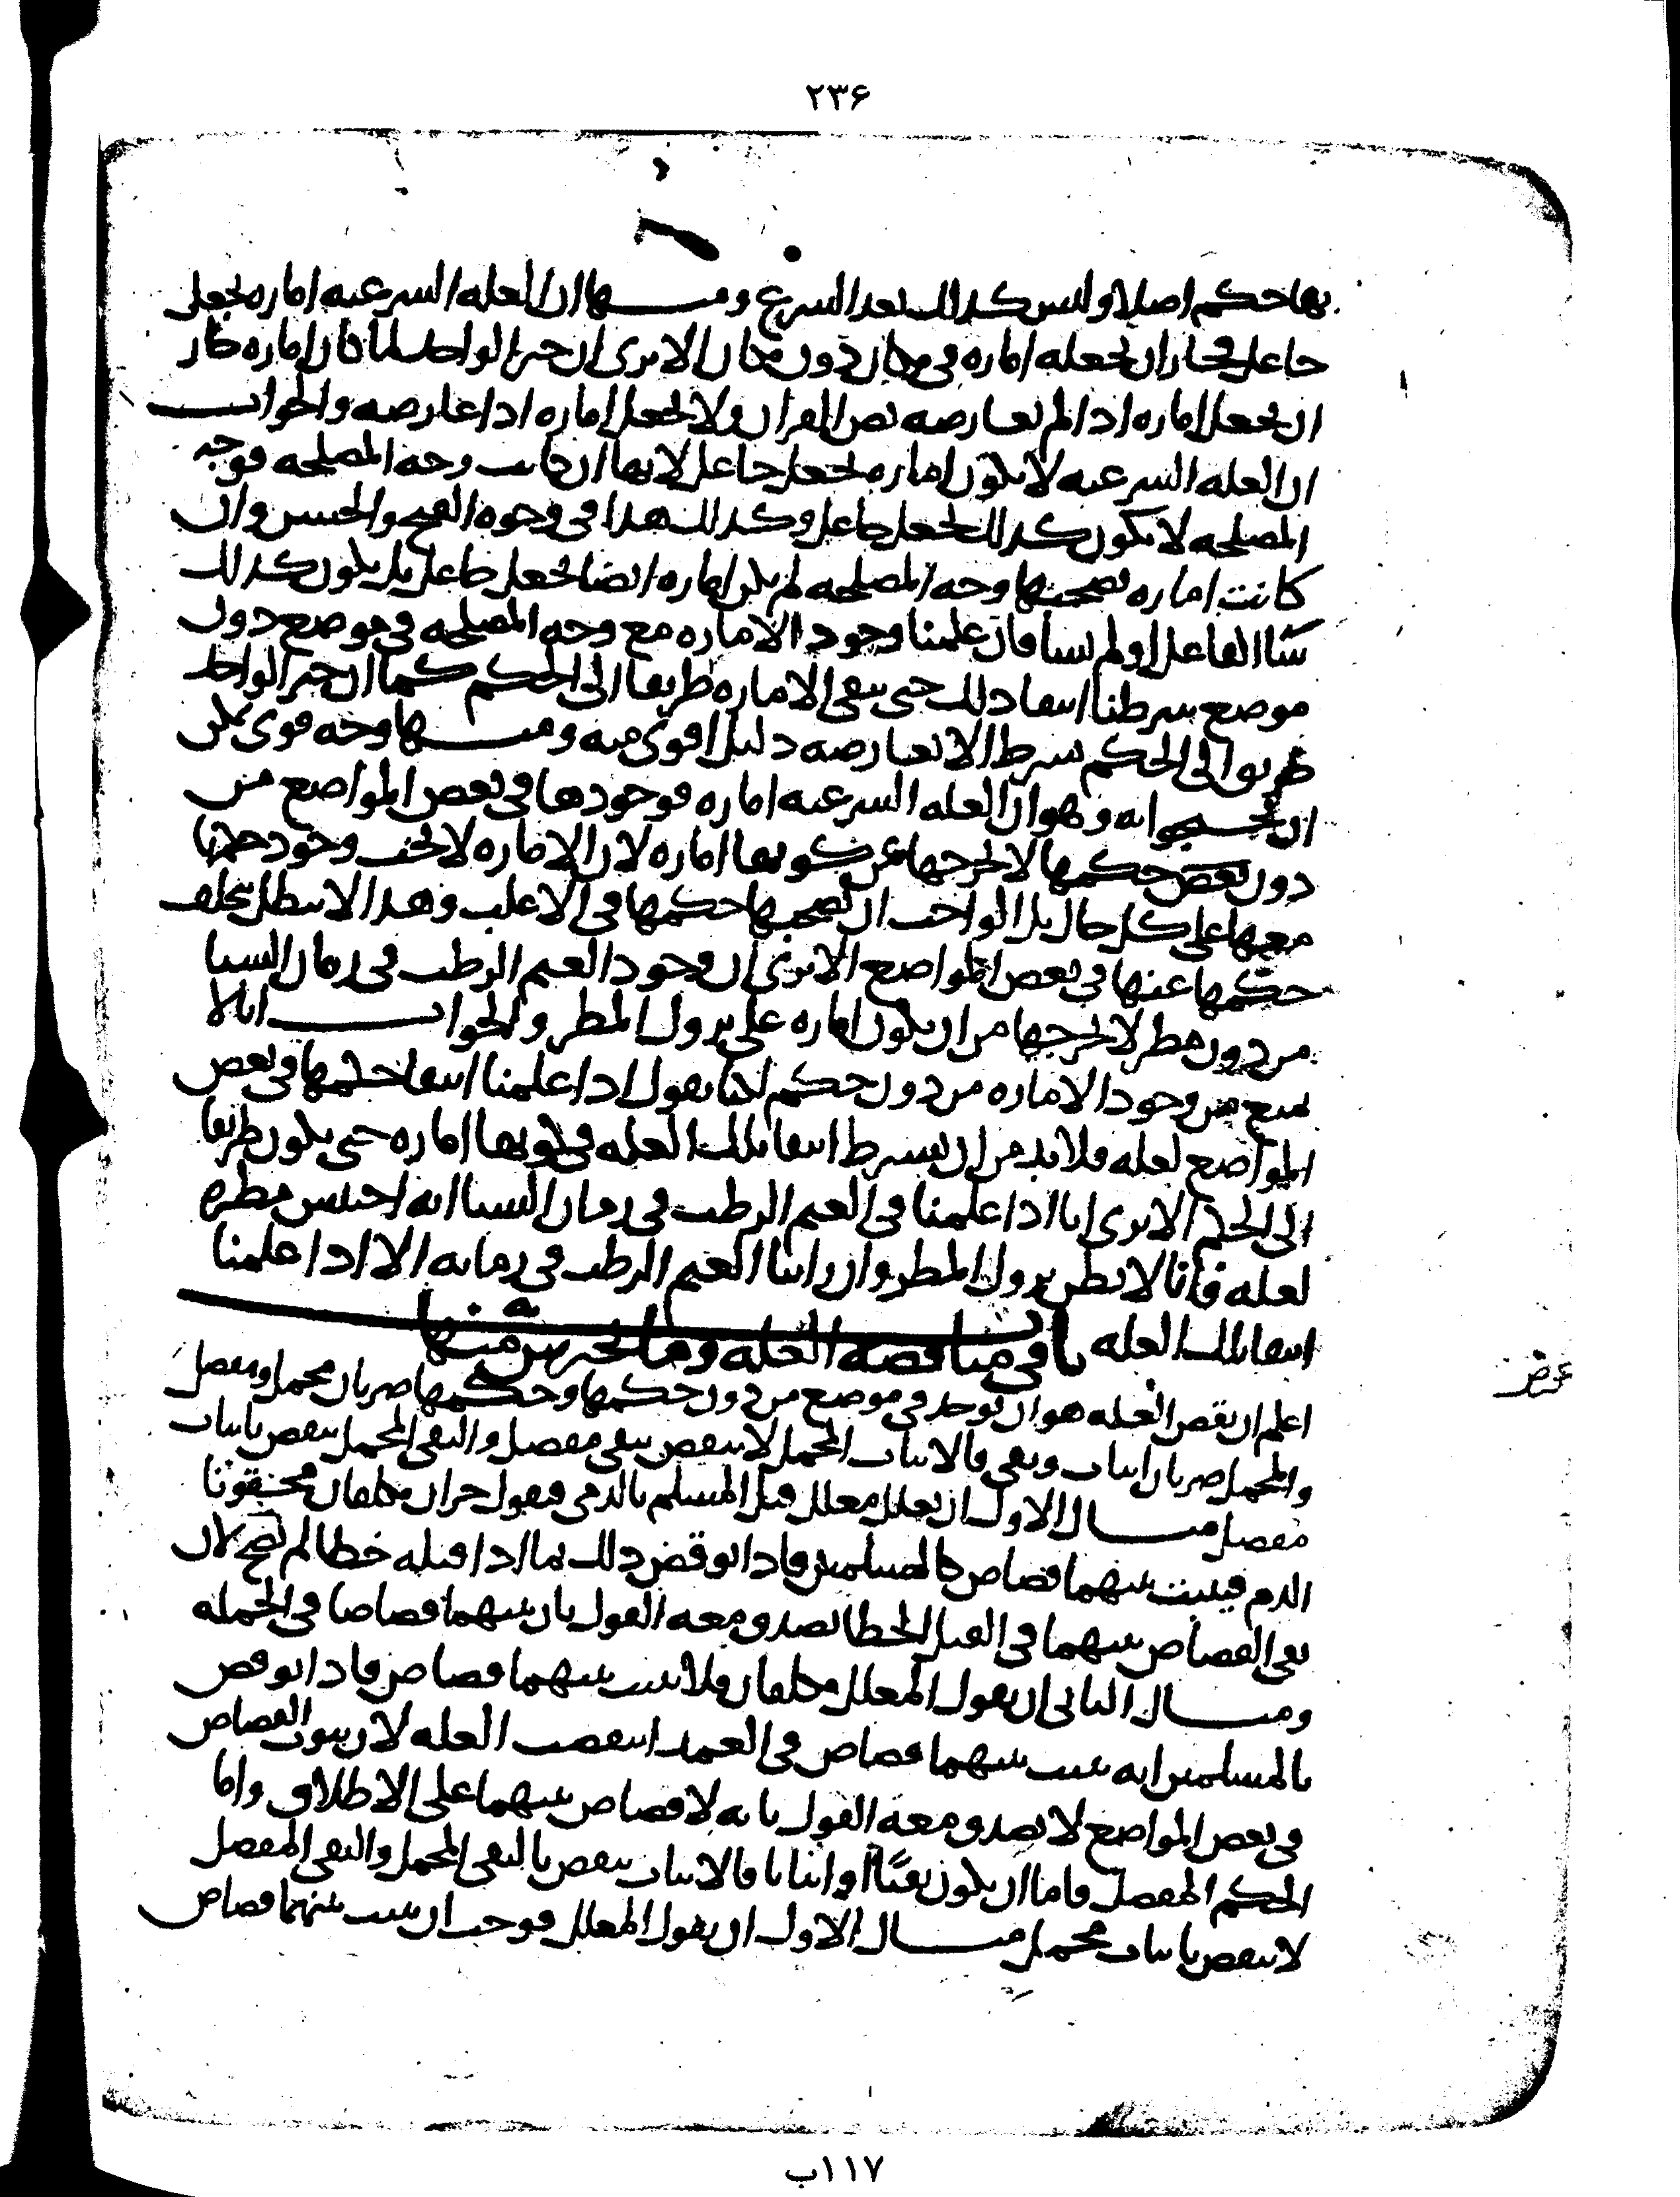 ٢٣۶
بها حكم اصلا وليس كذلك بعد الشرع ومنها ان العله الشرعيه اماره بجعل
جاعل فجاز ان يجعله اماره في مكان دون مكان الا ترى ان خبر الواحد لما كان اماره جاز
ان يجعل اماره اذا لم يعارضه نص القران ولا يجعل اماره اذا عارضه والجواب
ان العله الشرعيه لا يكون اماره بجعل جاعل لانها ان كانت وجه المصلحه فوجه
المصلحه لا يكون كذلك بجعل جاعل وكذلك هذا في وجوه القبح والحسن وان
كانت اماره تصحبها وجه المصلحه لم يكن اماره ايضا بجعل جاعل بل يكون كذلك
شاا الفاعل او لم يشا فان علمنا وجود الاماره مع وجه المصلحه في موضع دون
موضع شرطنا انتفا ذلك حتى يبقى الاماره طريقا الى الحكم كما ان خبر الواحد
طريق الى الحكم بشرط الا يعارضه دليل اقوى منه ومنها وجه قوى يمكن
ان يحتجوا به وهو ان العله الشرعيه اماره فوجودها في بعض المواضع من
دون بعض حكمها لا يخرجها عن كونها اماره لان الاماره لا يجب وجود حكمها
معها على كل حال بل الواجب ان يصحبها حكمها في الاغلب وهذا لا يبطل بتخلف
حكمها عنها في بعض المواضع الا ترى ان وجود الغيم الرطب في زمان الشتا
من دون مطر لا يخرجها من ان يكون اماره على نزول المطر والجواب انا لا
نمنع من وجود الاماره من دون حكم لكنا نقول اذا علمنا انتفا حكمها في بعض
المواضع لعله فلا بد من ان يشرط انتفا تلك العله في كونها اماره حتى يكون طريقا
الى الحكم الا ترى انا اذا علمنا في الغيم الرطب في زمان الشتا انه احتبس مطره
لعله فاننا لا نظن نزول المطر وان راينا الغيم الرطب في زمانه الا اذا علمنا
انتفا تلك العله باب في مناقضه العله وما يحترس به منها
اعلم ان نقض العله هو ان توجد في موضع من دون حكمها وحكمها ضربان مجمل ومفصل
والمجمل ضربان اثبات ونفي فالاثبات المجمل لا ينتقض بنفي مفصل والنفي المجمل ينتقض باثبات
مفصل مثال الاول ان يعلل معلل قتل المسلم بالذمي فيقول حران مكلفان محقونا
الدم فيثبت بينهما قصاص كالمسلمين فاذا نوقض ذلك بما اذا قتله خطا لم يصح لان
نفي القصاص بينهما في القتل الخطا يصدق معه القول بان بينهما قصاصا في الجمله
ومثال الثاني ان يقول المعلل مكلفان فلا يثبت بينهما قصاص فاذا نوقض
بالمسلمين انه يثبت بينهما قصاص في العمد انتقضت العله لان ثبوت القصاص
في بعض المواضع لا يصدق معه القول بانه لا قصاص بينهما على الاطلاق واما
الحكم المفصل فاما ان يكون نفيًا او اثباتا فالاثبات ينتقض بالنفي المجمل والنفي المفصل
لا ينتقض باثبات مجمل مثال الاول ان يقول المعلل فوجب ان يثبت بينهما قصاص
١١٧ب